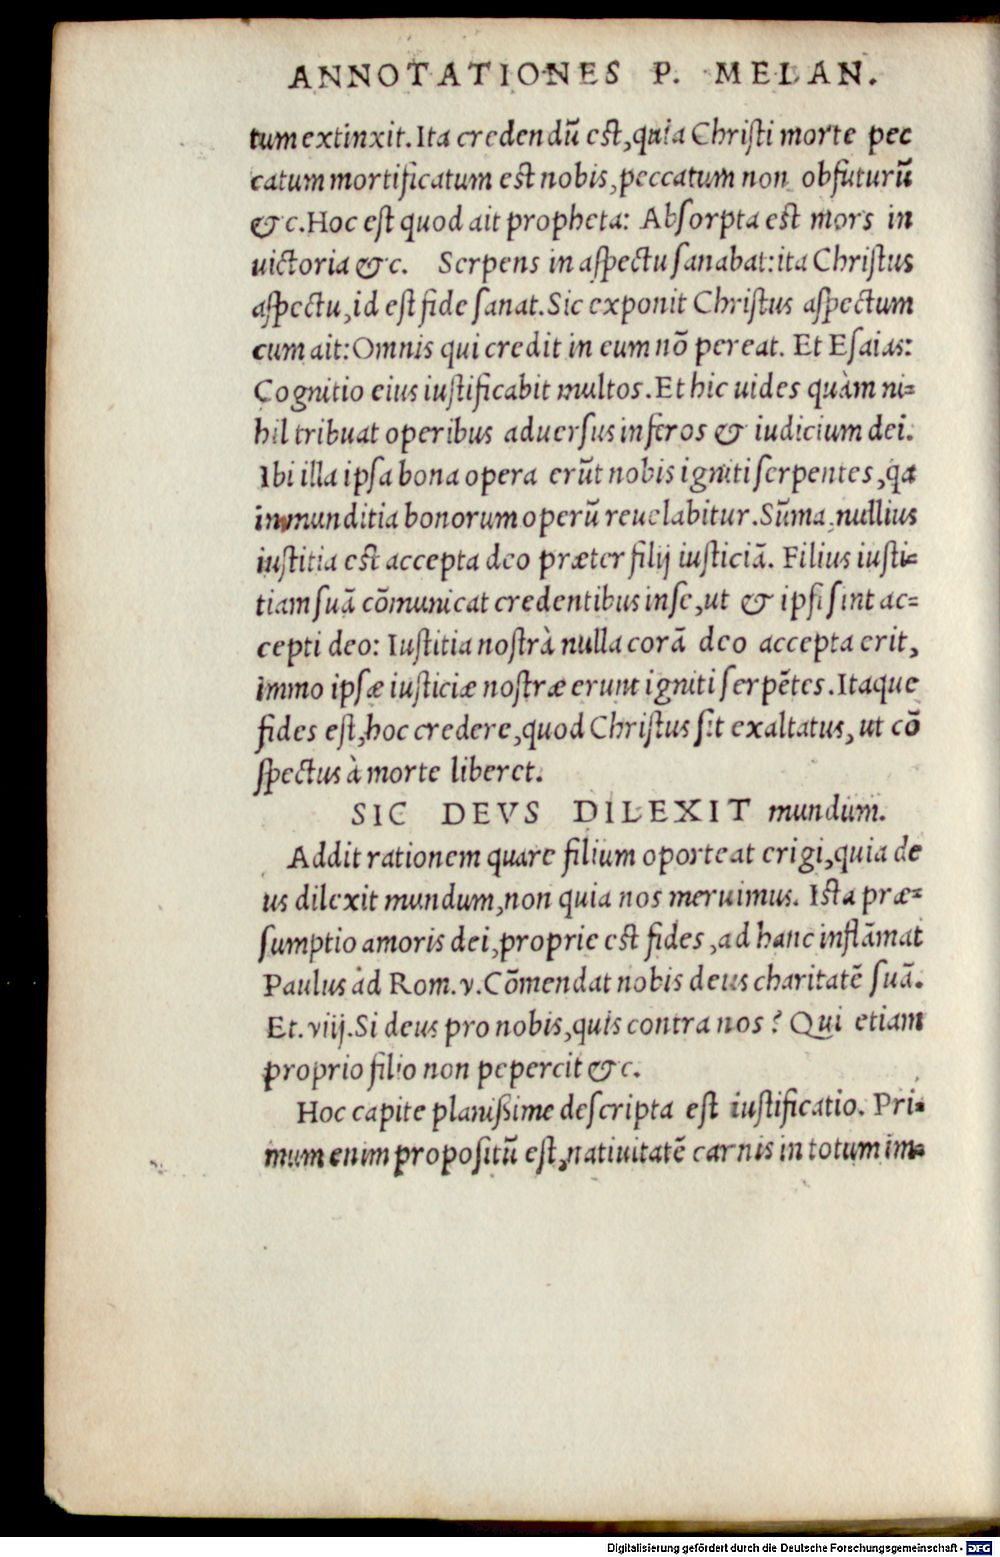 ANNOTATIONES P. MELAN.
tum extinxit. Ita credendū est, quia Christi morte pec
catum mortificatum est nobis, peccatum non obfuturū
&c. Hoc est quod ait propheta: Absorpta est mors in
uictoria &c. Serpens in aspectu sanabat: ita Christus
aspectu, id est fide sanat. Sic exponit Christus aspectum
cum ait: Omnis qui credit in eum nō pereat. Et Esaias:
Cognitio eius iustificabit multos. Et hic uides quàm ni=
hil tribuat operibus aduersus inferos & iudicium dei.
Ibi illa ipsa bona opera erūt nobis igniti serpentes, qa
inmunditia bonorum operū reuelabitur. Sūma, nullius
iustitia est accepta deo præter filij iusticiā. Filius iusti=
tiam suā cōmunicat credentibus in se, ut & ipsi sint ac=
cepti deo: Iustitia nostrà nulla corā deo accepta erit,
immo ipsæ iusticiæ nostræ erunt igniti serpētes. Itaque
fides est, hoc credere, quod Christus sit exaltatus, ut cō
spectus à morte liberet.
SIC DEVS DILEXIT mundum.
Addit rationem quare filium oporteat erigi, quia de
us dilexit mundum, non quia nos meruimus. Ista præ=
sumptio amoris dei, proprie est fides, ad hanc inflāmat
Paulus ad Rom. v. Cōmendat nobis deus charitatē suā.
Et. viij. Si deus pro nobis, quis contra nos? Qui etiam
proprio filio non pepercit &c.
Hoc capite planißime descripta est iustificatio. Pri=
mum enim propositū est, natiuitatē carnis in totum im=
Digitalisierung gefördert durch die Deutsche Forschungsgemeinschaft - DFG